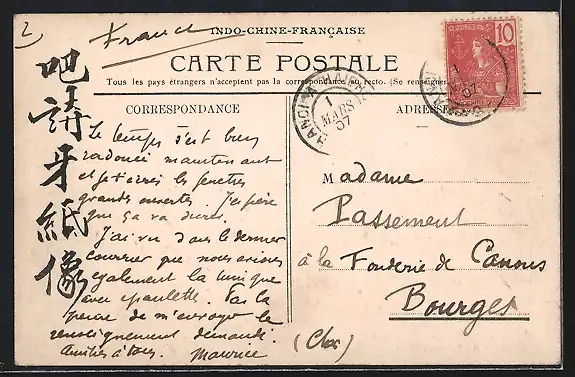 2
France
INDO-CHINE-FRANÇAISE
CARTE POSTALE
Tous les pays étrangers n'acceptent pas la correspondance au recto. (Se renseigner
CORRESPONDANCE
ADRESSE
10
1
MARS
07
吧講牙紙像
Le temps s'est bien
radouci maintenant
et je t'écris les fenêtres
grandes ouvertes. J'espère
que ça va durer.
J'ai vu dans le dernier
courrier que nous avions
également la tunique
avec épaulette. Pas la
peine de m'envoyer le
renseignement demandé.
Amitiés à tous. Maurice
Madame
Passement
à la Fonderie de Canons
Bourges
(Cher)